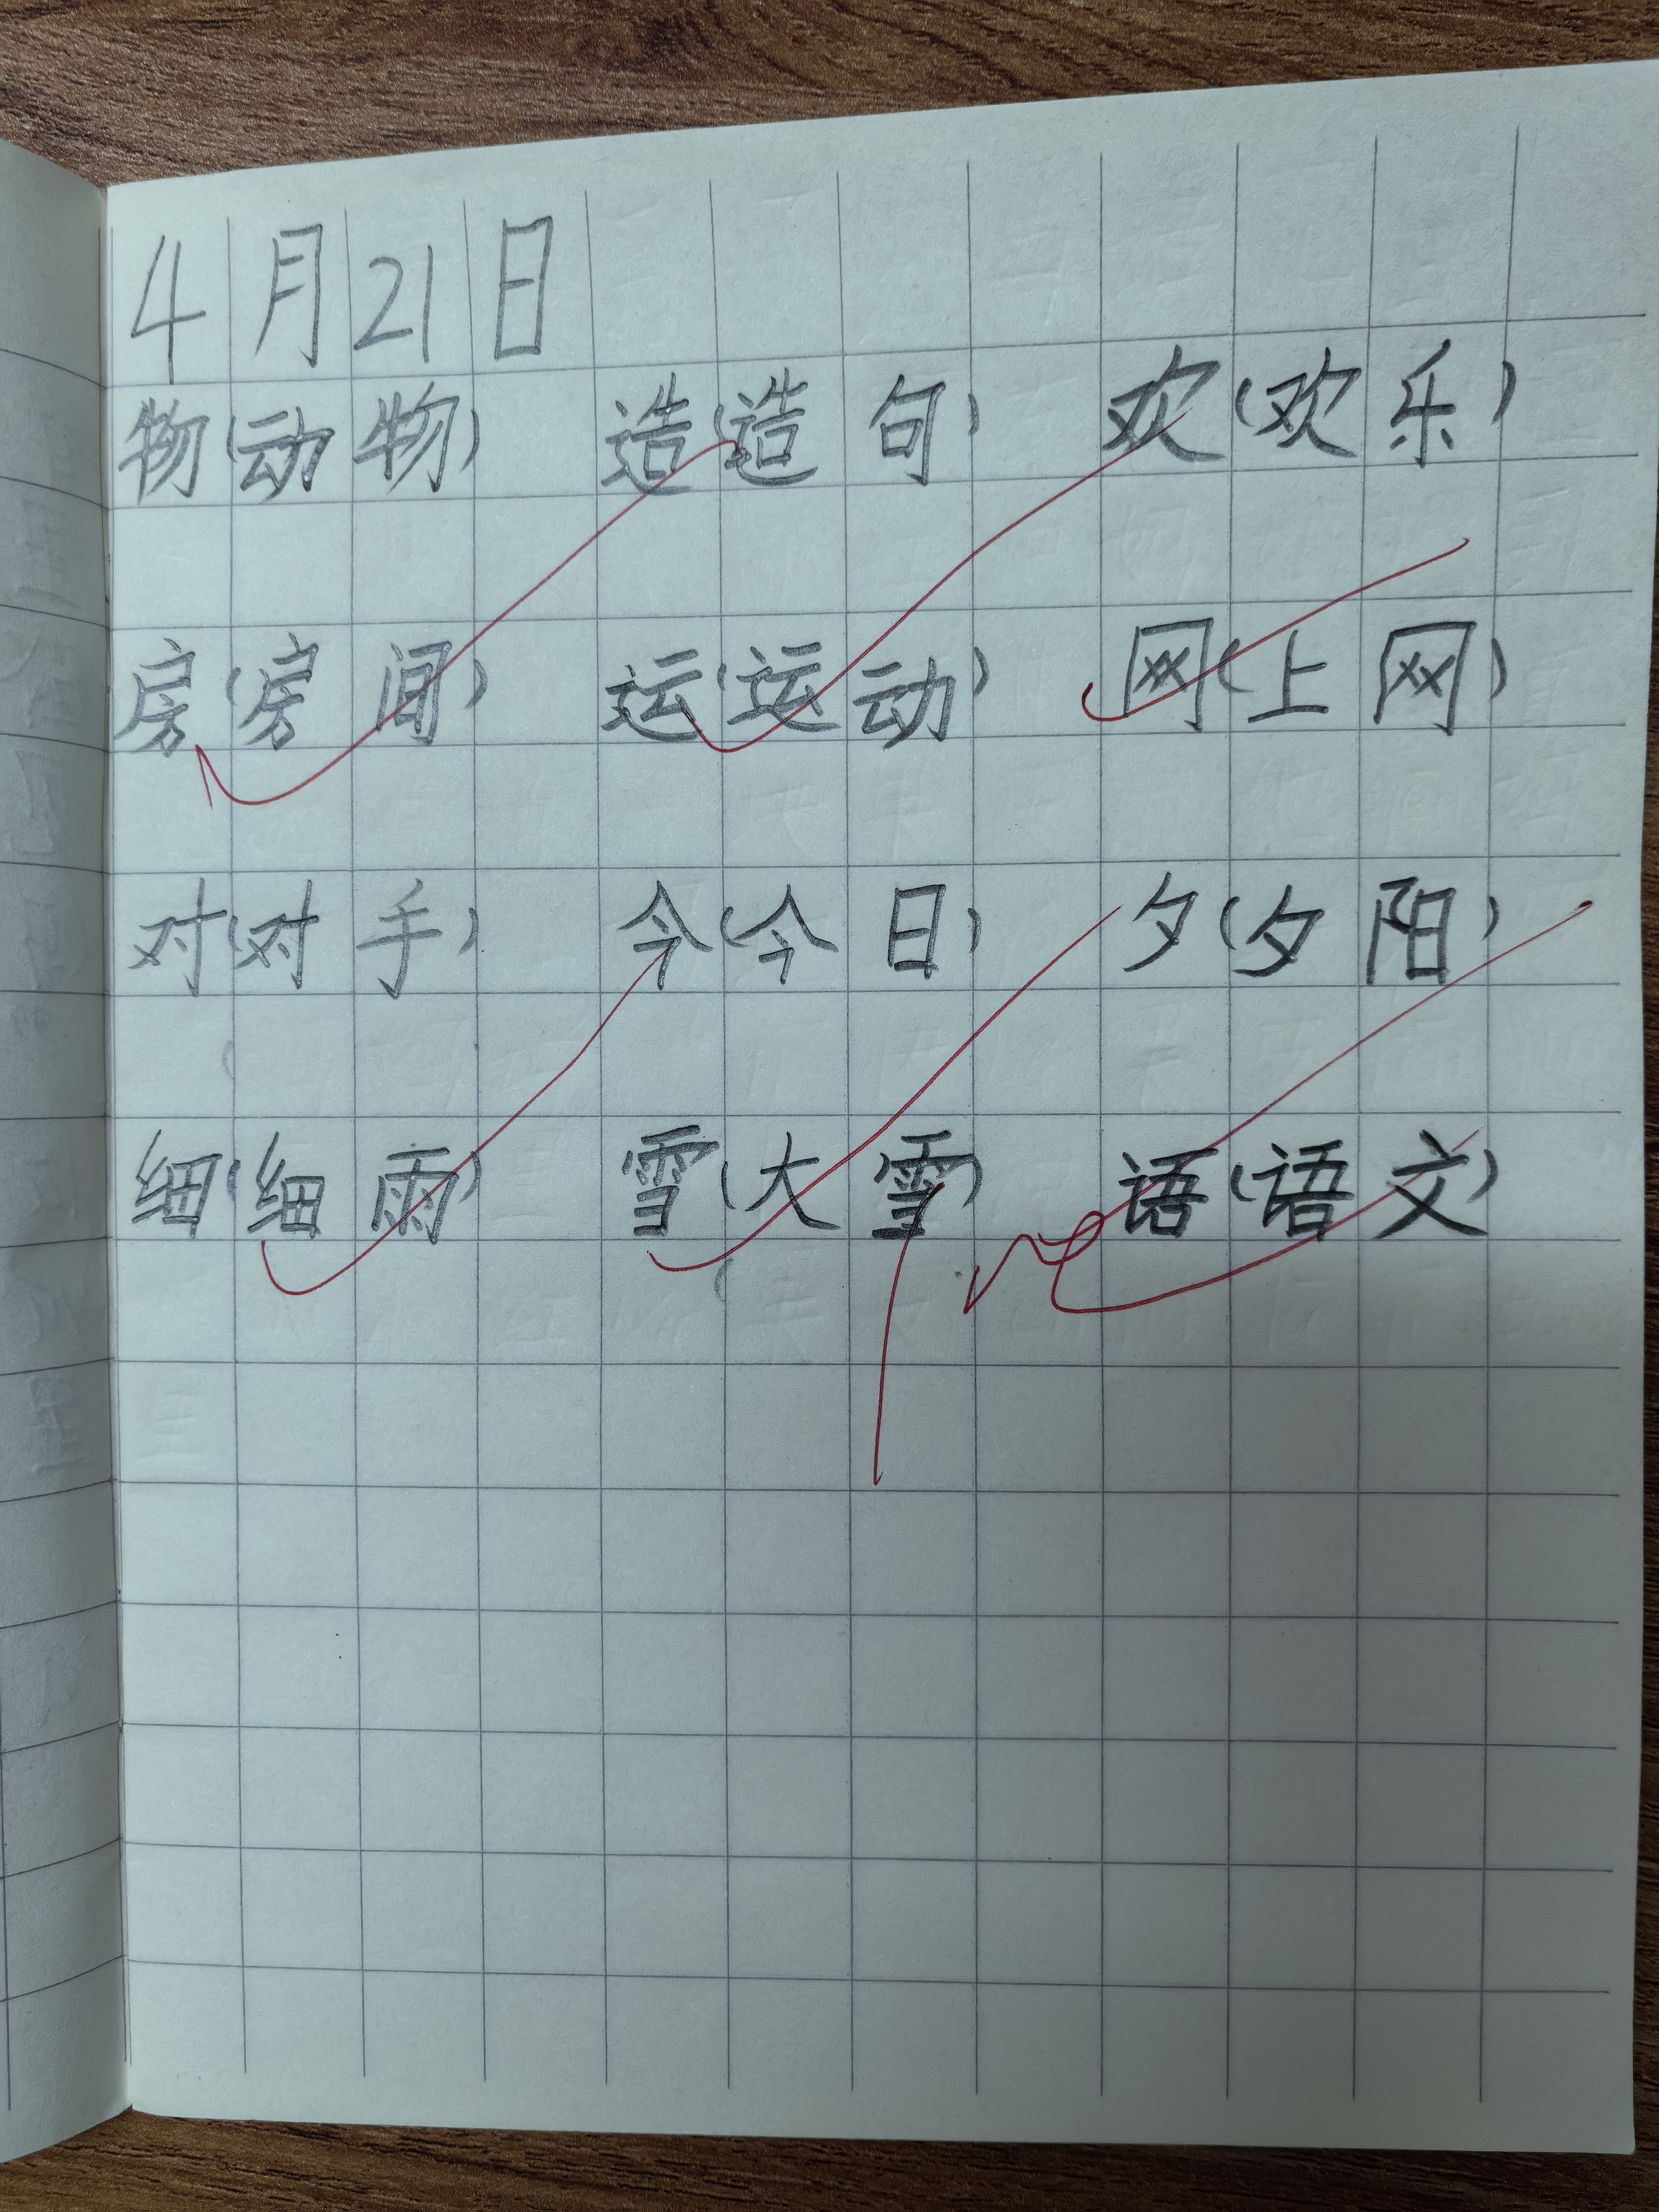 4月21日
物(动物) 造(造句) 欢(欢乐)
房(房间) 运(运动) 网(上网)
对(对手) 今(今日) 夕(夕阳)
细(细雨) 雪(大雪) 语(语文)